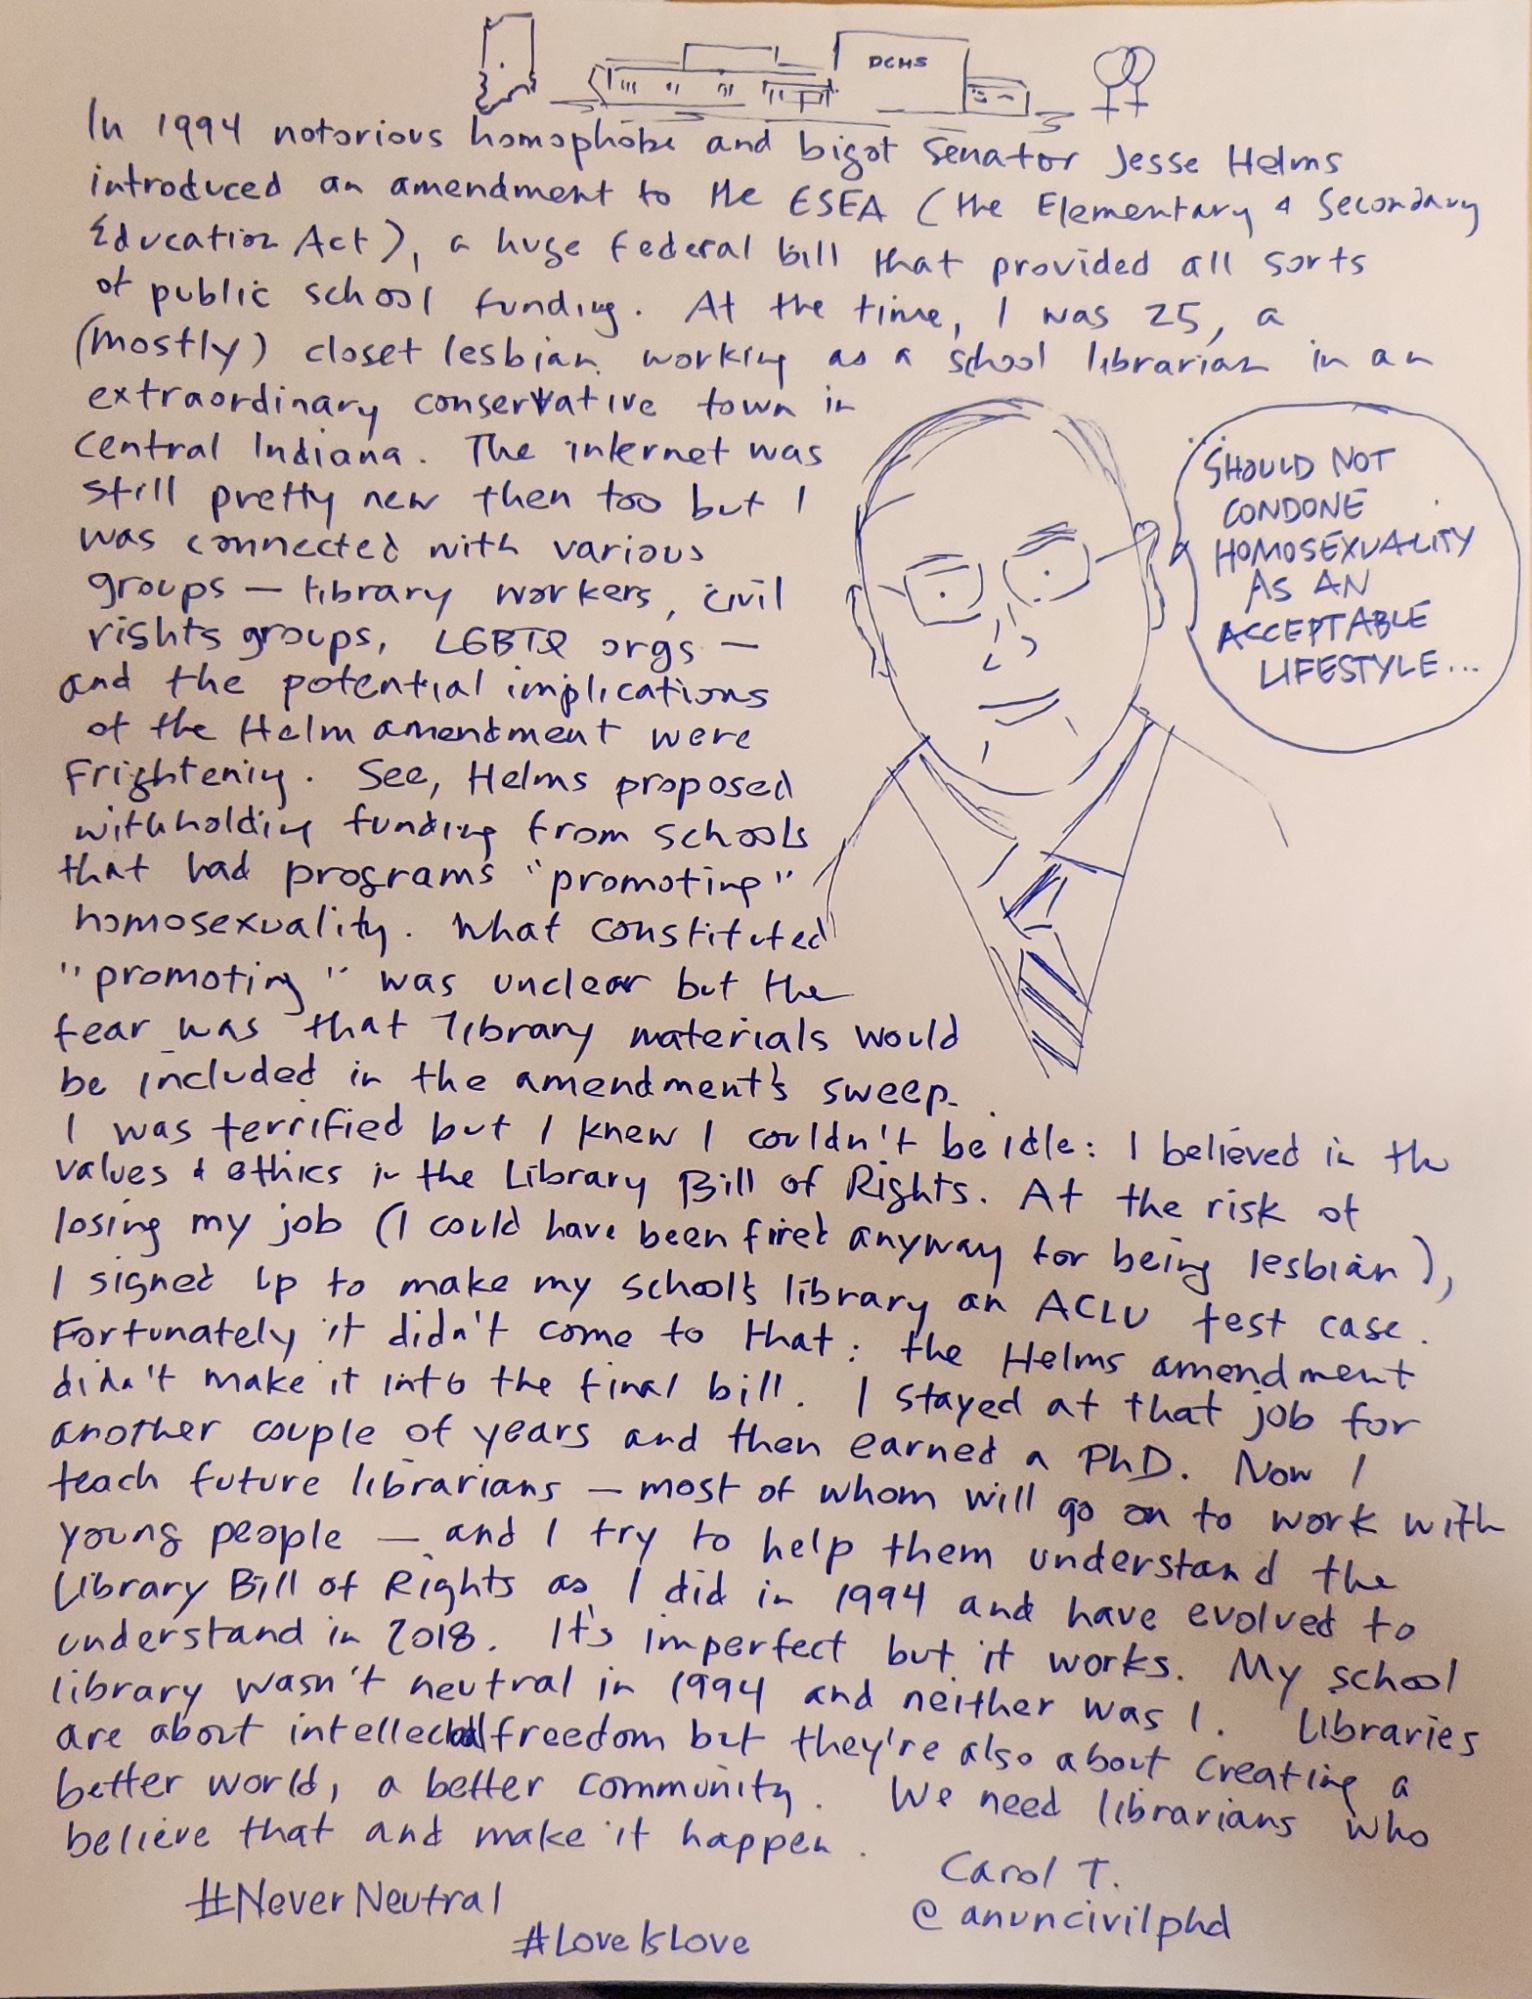 DCHS
In 1994 notorious homophobe and bigot Senator Jesse Helms
introduced an amendment to the ESEA (the Elementary & Secondary
Education Act), a huge federal bill that provided all sorts
of public school funding. At the time, I was 25, a
(mostly) closet lesbian working as a school librarian in an
extraordinary conservative town in
central Indiana. The internet was
still pretty new then too but I
was connected with various
groups — library workers, civil
rights groups, LGBTQ orgs —
and the potential implications
of the Helm amendment were
frightening. See, Helms proposed
withholding funding from schools
that had programs "promoting"
homosexuality. What constituted
"promoting" was unclear but the
fear was that library materials would
be included in the amendment's sweep.
SHOULD NOT
CONDONE
HOMOSEXUALITY
AS AN
ACCEPTABLE
LIFESTYLE...
I was terrified but I knew I couldn't be idle: I believed in the
values & ethics in the Library Bill of Rights. At the risk of
losing my job (I could have been fired anyway for being lesbian),
I signed up to make my school's library an ACLU test case.
Fortunately it didn't come to that: the Helms amendment
didn't make it into the final bill. I stayed at that job for
another couple of years and then earned a PhD. Now I
teach future librarians — most of whom will go on to work with
young people — and I try to help them understand the
Library Bill of Rights as I did in 1994 and have evolved to
understand in 2018. It's imperfect but it works. My school
library wasn't neutral in 1994 and neither was I. Libraries
are about intellectual freedom but they're also about creating a
better world, a better community. We need librarians who
believe that and make it happen.
Carol T.
@anuncivilphd
#NeverNeutral
#LoveIsLove